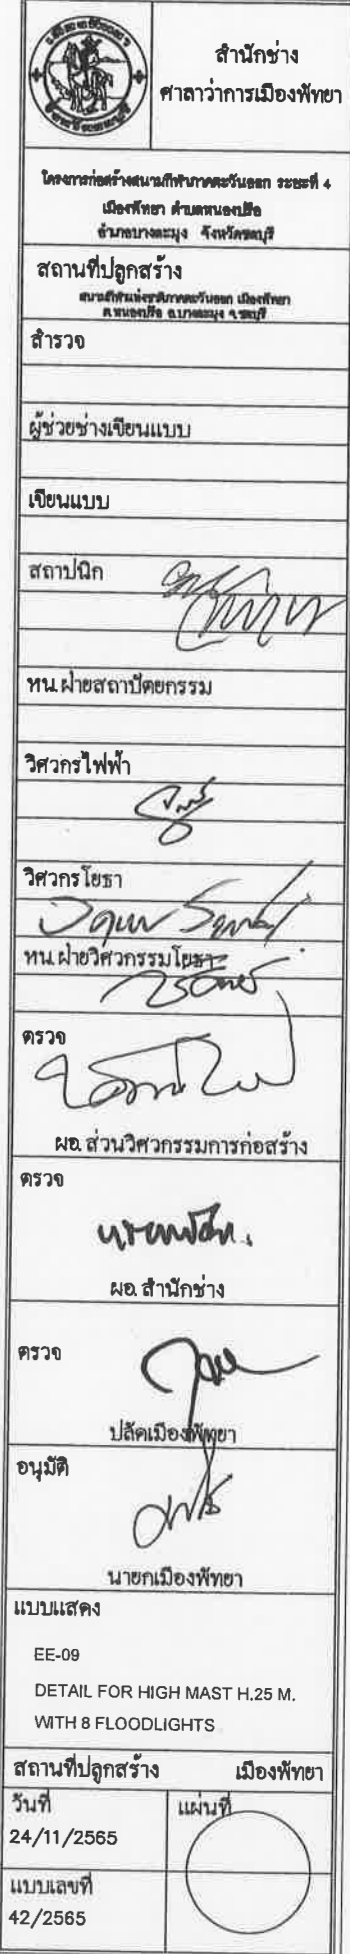 สำนักช่าง
ศาลาว่าการเมืองพัทยา
โครงการก่อสร้างสนามกีฬาภาคตะวันออก ระยะที่ 4
เมืองพัทยา ตำบลหนองปรือ
อำเภอบางละมุง จังหวัดชลบุรี
สถานที่ปลูกสร้าง
สนามกีฬาแห่งชาติภาคตะวันออก เมืองพัทยา
ต.หนองปรือ อ.บางละมุง จ.ชลบุรี
สำรวจ
ผู้ช่วยช่างเขียนแบบ
เขียนแบบ
สถาปนิก
หน.ฝ่ายสถาปัตยกรรม
วิศวกรไฟฟ้า
วิศวกรโยธา
หน.ฝ่ายวิศวกรรมโยธา
ตรวจ
ผอ.ส่วนวิศวกรรมการก่อสร้าง
ตรวจ
ผอ.สำนักช่าง
ตรวจ
ปลัดเมืองพัทยา
อนุมัติ
นายกเมืองพัทยา
แบบแสดง
EE-09
DETAIL FOR HIGH MAST H.25 M.
WITH 8 FLOODLIGHTS
สถานที่ปลูกสร้าง เมืองพัทยา
วันที่ แผ่นที่
24/11/2565
แบบเลขที่
42/2565